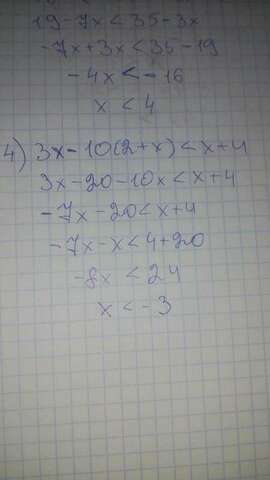 19-7x<35-3x
-7x+3x<35-19
-4x<-16
x<4
4) 3x-10(2+x)<x+4
3x-20-10x<x+4
-7x-20<x+4
-7x-x<4+20
-8x<24
x<-3